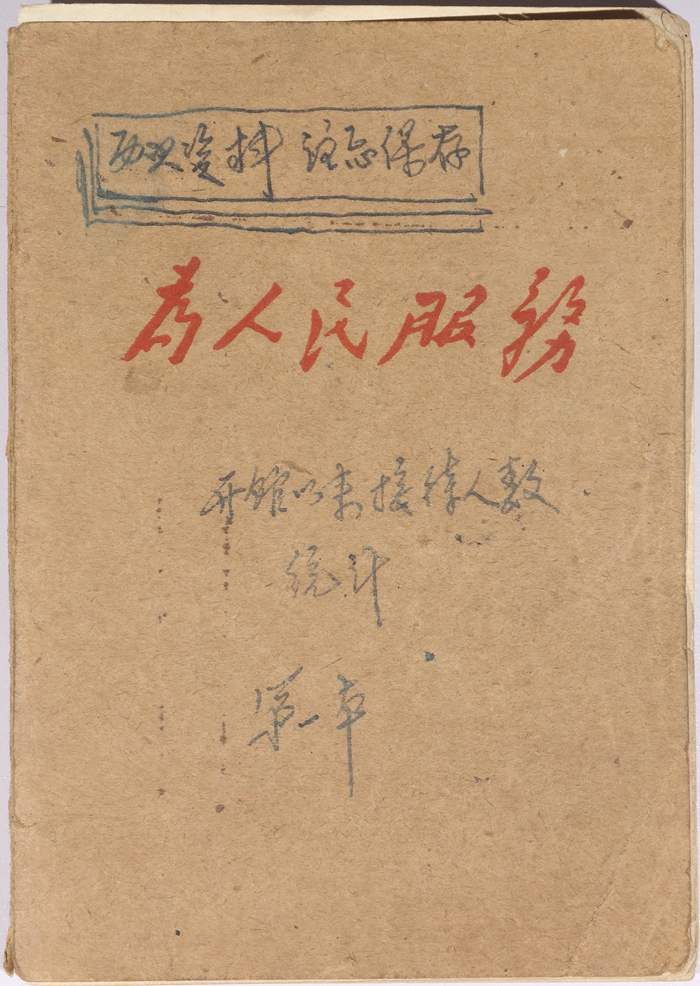 历史资料 注意保存
为人民服務
开馆以来接待人数
统计
第一本